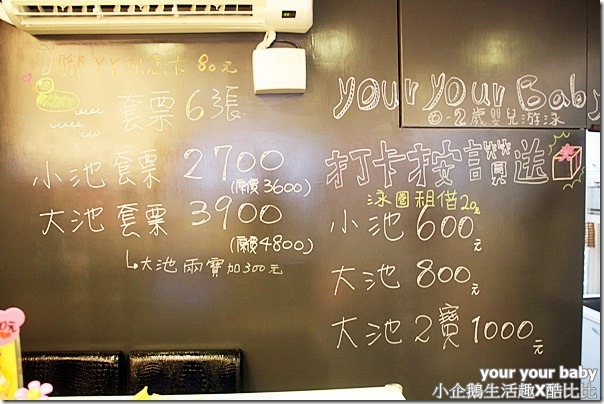 80元
套票6張
小池套票 2700
(原價3600)
大池套票 3900
(原價4800)
↳大池兩寶加300元
your your Baby
0-2歲嬰兒游泳
打卡按讚送
泳圈租借20元
小池 600元
大池 800元
大池2寶1000元
your your baby
小企鵝生活趣X酷比比